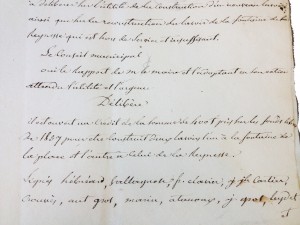 à délibérer sur l'utilité de la construction d'un nouveau lavoir
ainsi que sur la reconstruction du lavoir de la fontaine de la
qui est hors de service et insuffisant.
Le Conseil municipal
ouï le rapport de m. le maire et l'adoptant en son entier
attendu l'utilité et l'urgence
Délibère
un crédit de la somme de 400 f pris sur les fonds libres
de 18 pour construire deux lavoirs l'un à la fontaine de
la place et l'autre à celui de la
Signés hébrard, f. clavier, j. jh
ant grot, marin, j. grot,
et